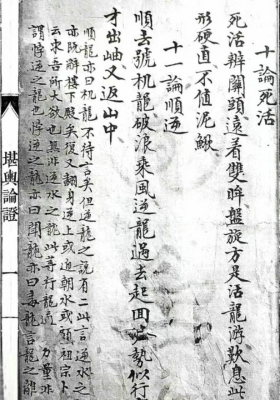 十論死活
死活辯關頭遠着雙眸盤旋方是活龍游歎息此
形硬直不值泥鰍
十一論順逆
順去號机龍破浪乘風逆龍過去起回 執似行
才出岫又返山中
順龍亦曰机龍不待言矣但逆龍之說有二此言逆水之
亦既辭樓下殿矣復又翻身逆上或迎朝水或顧祖宗卜
云求吾所大欲也無非逆水之此等行龍 力量非
謂悖逆之龍也悖逆之龍亦曰閗龍亦曰 龍言龍之離
堪輿論證